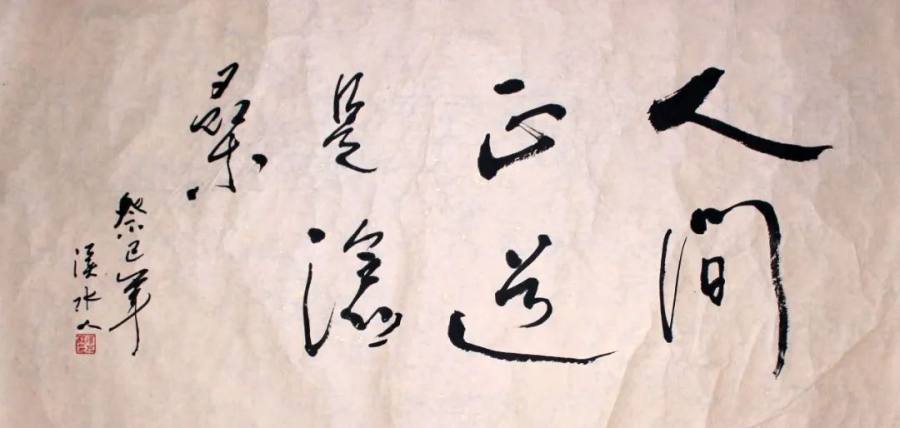 人间
正道
是沧
桑
癸巳年
溪水人